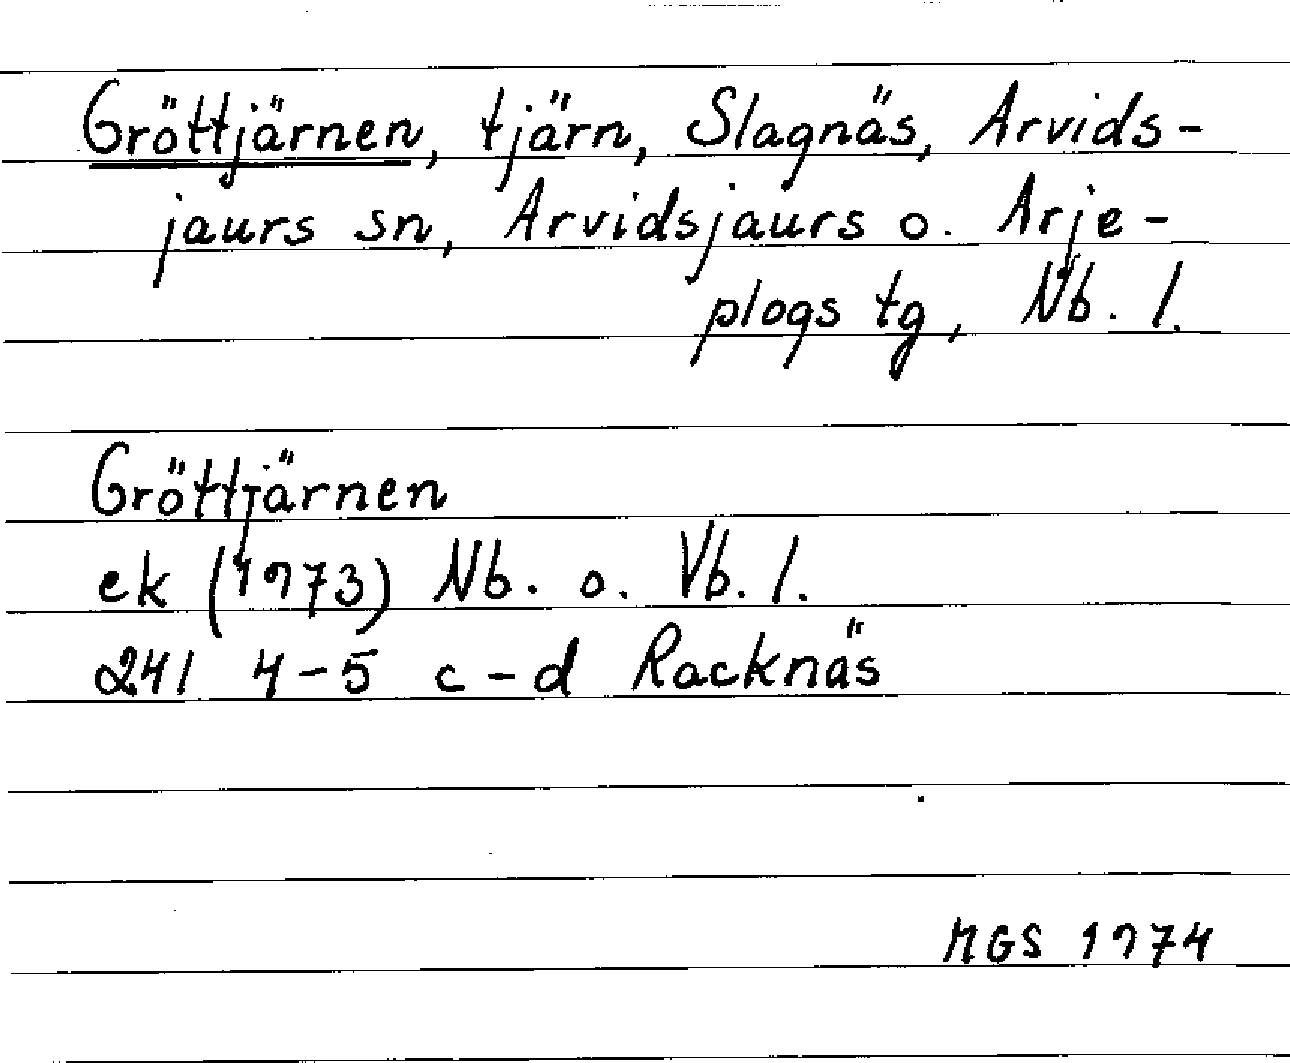 Gröttjärnen, tjärn, Slagnäs, Arvids-
jaurs sn, Arvidsjaurs o. Arje-
plogs tg, Nb. l.
Gröttjärnen
ek (1973) Nb. o. Vb. l.
241 4-5 c-d Racknäs
MGS 1974